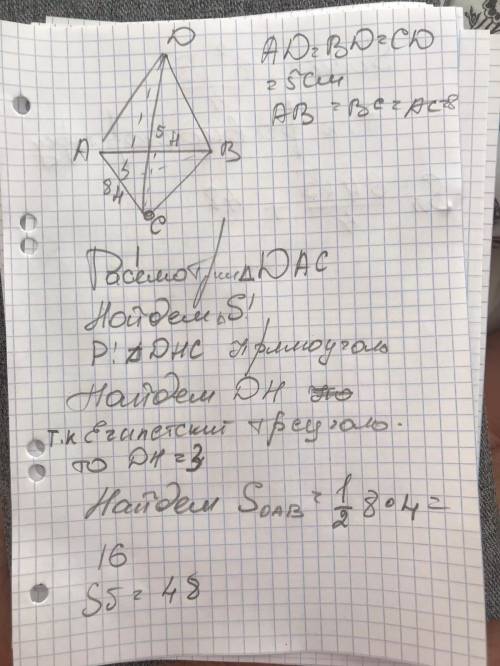 D
AD=BD=CD
=5см
AB=BC=AC=8
5 H
A
B
5
8 H
C
Рассмотрим △DAC
Найдем S!
P! △DHC прямоуголь
Найдем DH
т.к Египетский треуголь.
то DH=3
Найдем S DAB = 1/2 8•4=
16
Sб= 48